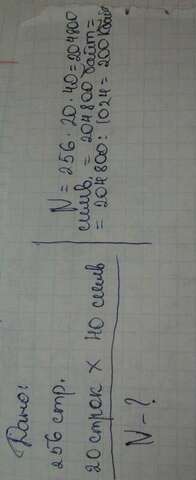 Дано:
256 стр.
20 строк х 40 симв
N - ?
N = 256 · 20 · 40 = 204800
симв. = 204800 байт =
= 204800 : 1024 = 200 Кбайт